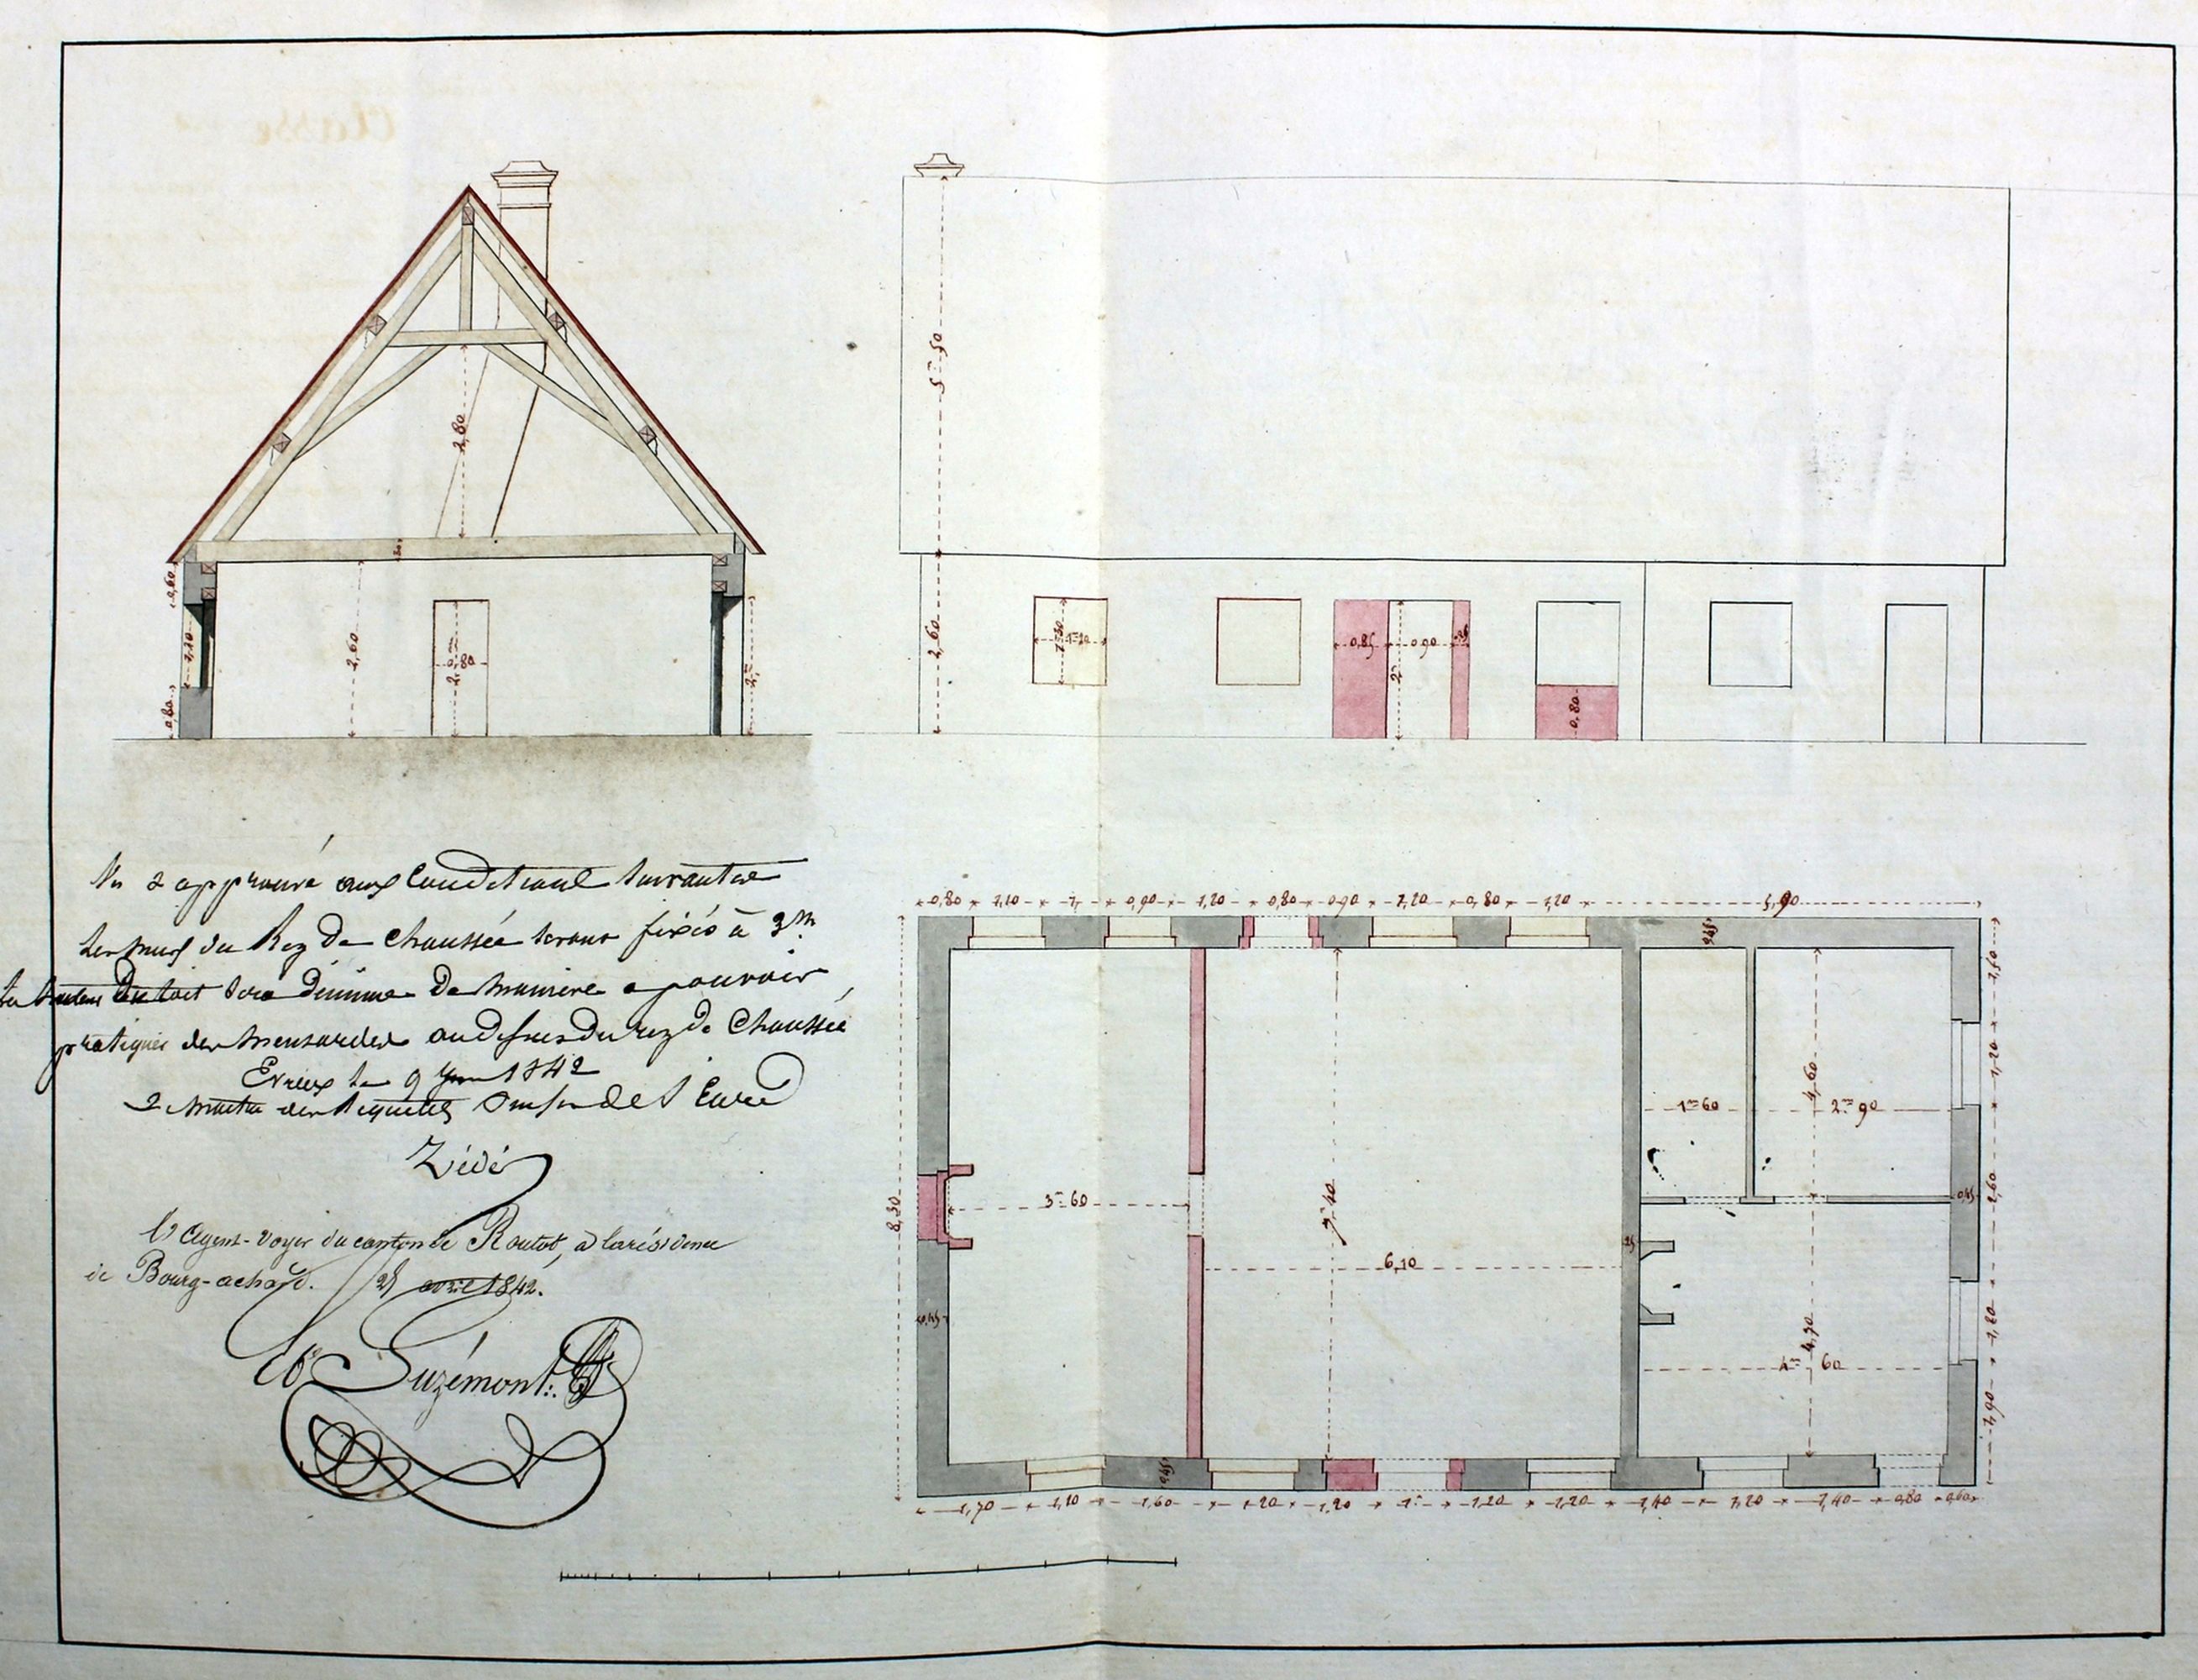 5m50
2,80
0,60
2,60
2,60
1,20
0,80
2,m
0,80
1m20
0,85
0,90
2m
0,80
Vu & approuvé aux Conditions suivantes
Les murs du Rez de Chaussée seront fixés à 3m
La hauteur du toit sera diminuée de manière a pouvoir
pratiquer des mansardes au dessus du rez de Chaussée
Evreux le 9 1842
Maitre des Requêtes de l'Eure
Zédé
L'Agent-Voyer du canton de Routot, à la résidence
de Bourg-achard. avril 1842.
Suzémont
0,80 1,10 1, 0,90 1,20 0,80 0,90 1,20 0,80 1,20 5,90
0,45
1,50
1,20
4,60
1m60 2m90
2,60
0,45
3m60
8,30
7m40
6,10
25
0,45
4,m 60
1,20
1,90
0,45
1,70 1,10 1,60 1,20 1,20 1m 1,20 1,20 1,40 1,20 1,40 0,80 0,60